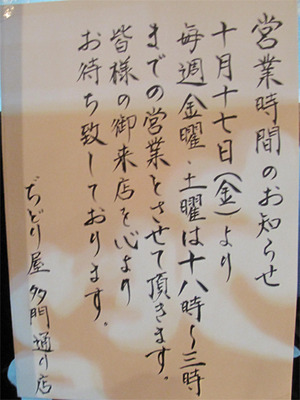 営業時間のお知らせ
十月十七日(金)より
毎週金曜・土曜は十八時〜三時
までの営業とさせて頂きます。
皆様の御来店を心より
お待ち致しております。
ぢどり屋 多門通り店